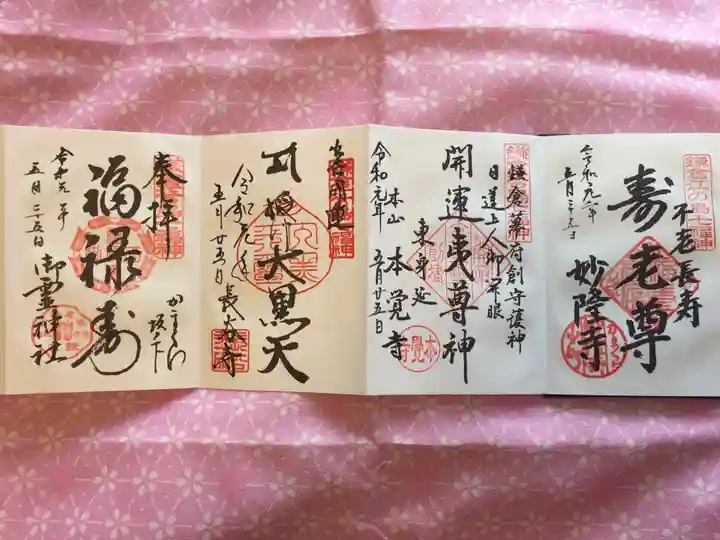 鎌倉江の島七福神
不老長寿
寿老尊
妙隆寺
令和元年
鎌倉幕府創守護神
日送上人御開眼
開運夷尊神
東身延
本山 本覚寺
令和元年 五月廿五日
本覺寺
大黒天
令和元年
五月廿五日
長谷寺
奉拝
かまくら
坂ノ下
福禄寿
令和元年
五月二五日
御霊神社